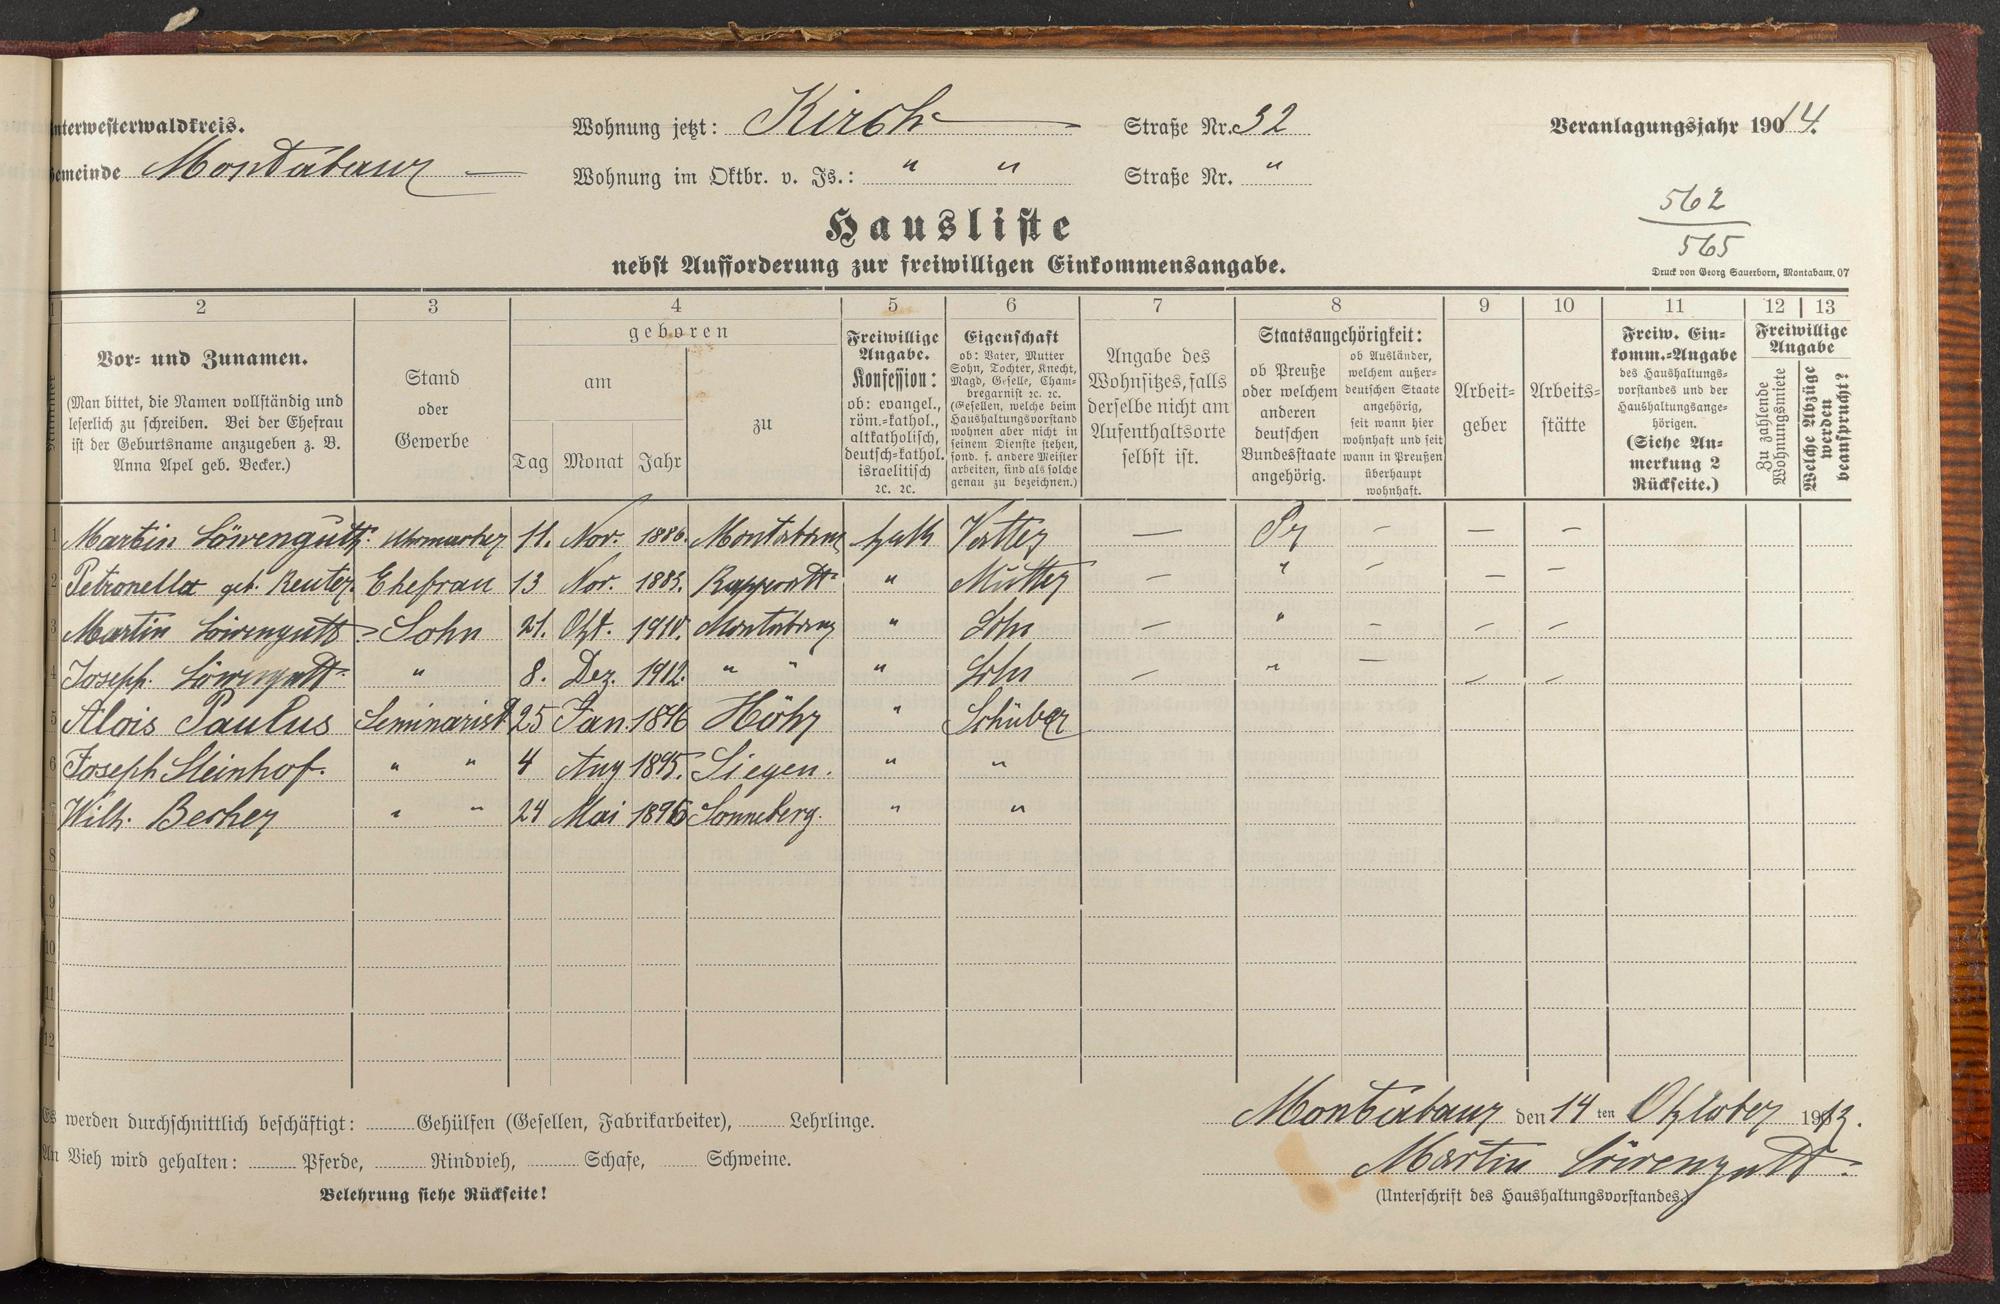 nterwesterwaldkreis.
Wohnung jetzt: Kirch-
Straße Nr. 32
Veranlagungsjahr 190 14.
emeinde Montabaur
Wohnung im Oktbr. v. Js.: " "
Straße Nr. "
562
565
Hausliste
nebst Aufforderung zur freiwilligen Einkommensangabe.
Druck von Georg Sauerborn, Montabaur. 07
1 2 3 4 5 6 7 8 9 10 11 12 13
Nummer
Vor- und Zunamen.
(Man bittet, die Namen vollständig und
leserlich zu schreiben. Bei der Ehefrau
ist der Geburtsname anzugeben z. B.
Anna Apel geb. Becker.)
Stand
oder
Gewerbe
geboren
am
Tag Monat Jahr
zu
Freiwillige
Angabe.
Konfession:
ob: evangel.,
röm.-kathol.,
altkatholisch,
deutsch-kathol.
israelitisch
2c. 2c.
Eigenschaft
ob: Vater, Mutter
Sohn, Tochter, Knecht,
Magd, Geselle, Cham-
bregarnist 2c. 2c.
(Gesellen, welche beim
Haushaltungsvorstand
wohnen aber nicht in
seinem Dienste stehen,
sond. f. andere Meister
arbeiten, sind als solche
genau zu bezeichnen.)
Angabe des
Wohnsitzes, falls
derselbe nicht am
Aufenthaltsorte
selbst ist.
Staatsangehörigkeit:
ob Preuße
oder welchem
anderen
deutschen
Bundesstaate
angehörig.
ob Ausländer,
welchem außer-
deutschen Staate
angehörig,
seit wann hier
wohnhaft und seit
wann in Preußen
überhaupt
wohnhaft.
Arbeit-
geber
Arbeits-
stätte
Freiw. Ein-
komm.-Angabe
des Haushaltungs-
vorstandes und der
Haushaltungsange-
hörigen.
(Siehe An-
merkung 2
Rückseite.)
Freiwillige
Angabe
Zu zahlende
Wohnungsmiete
Welche Abzüge
werden
beansprucht?
1 Martin Löwenguth Uhrmacher 11. Nov. 1886. Montabaur kath Vatter — Pr – – –
2 Petronella geb. Reuter. Ehefrau 13 Nov. 1885. " Mutter – " – – –
3 Martin Löwenguth Sohn 21. Okt. 1910. Montabaur " Sohn – " – – –
4 Joseph. Löwenguth " 8. Dez. 1912. " " " Sohn – " – – –
5 Alois Paulus Seminarist 25 Jan. 1896 Höhr " Schüber
6 Joseph Steinhof. " " 4 Aug 1895. Siegen. " "
7 Wilh. Becker " " 24 Mai 1896 Sonneberg. " "
8
9
10
11
12
Es werden durchschnittlich beschäftigt: Gehülfen (Gesellen, Fabrikarbeiter), Lehrlinge.
Montabaur den 14 ten Oktober 1913.
An Vieh wird gehalten: Pferde, Rindvieh, Schafe, Schweine.
Martin Löwenguth
Belehrung siehe Rückseite!
(Unterschrift des Haushaltungsvorstandes.)